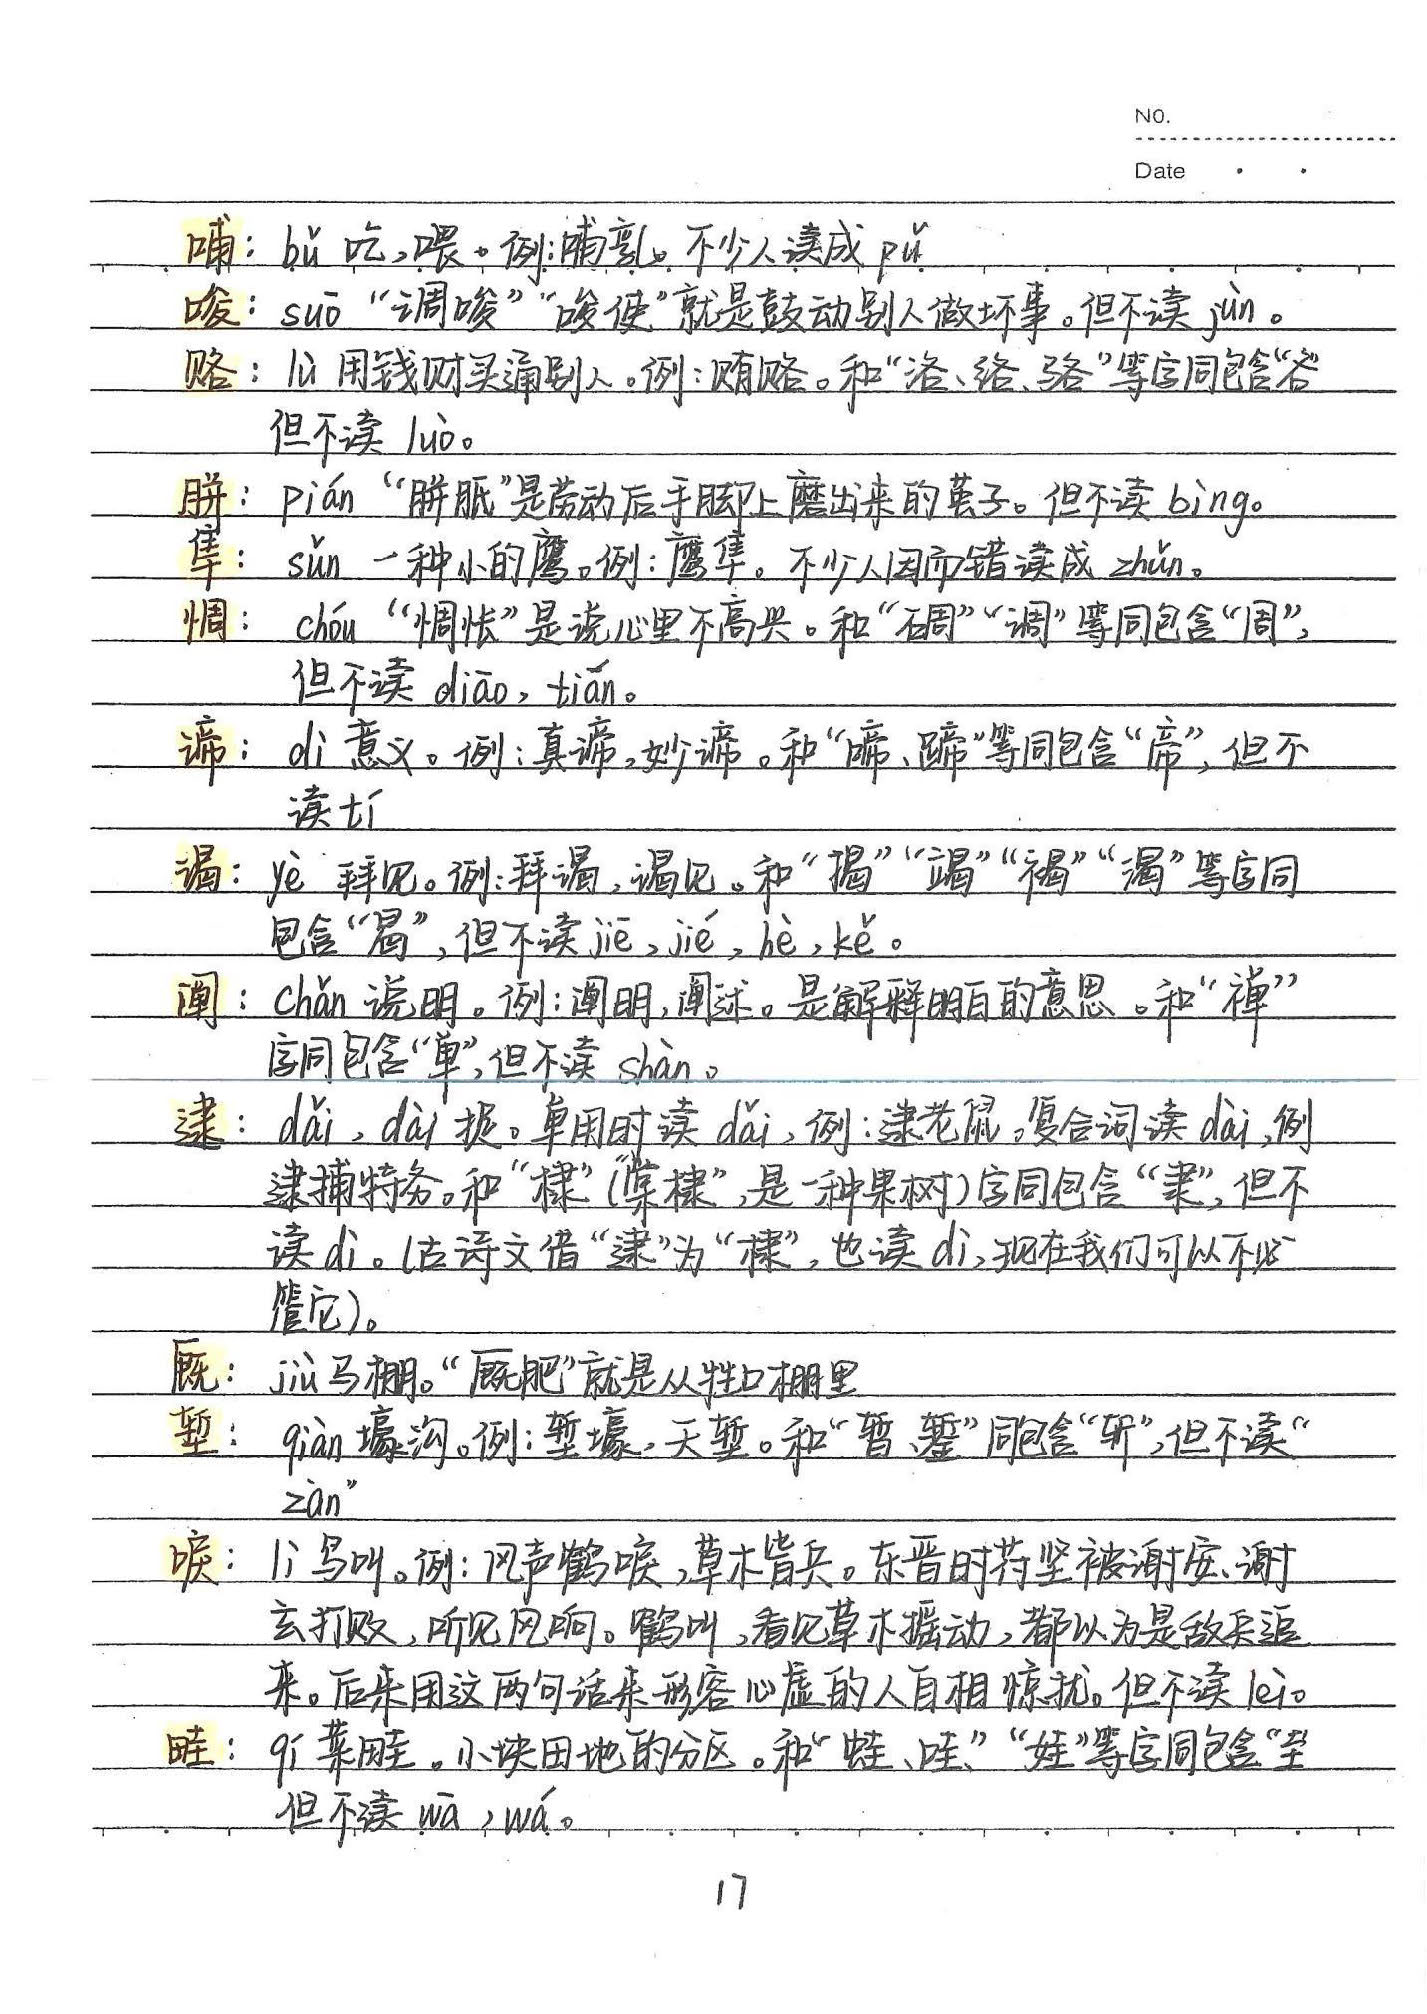 NO.
Date
哺：bǔ 吃，喂。例：哺乳。不少人读成 pǔ
唆：suō “调唆”“唆使”就是鼓动别人做坏事。但不读 jùn。
赂：lù 用钱财买通别人。例：贿赂。和“洛、络、骆”等字同包含“各
但不读 luò。
胼：pián “胼胝”是劳动后手脚上磨出来的茧子。但不读 bìng。
隼：sǔn 一种小的鹰。例：鹰隼。不少人因而错读成 zhǔn。
惆：chóu “惆怅”是说心里不高兴。和“碉”“调”等同包含“周”，
但不读 diāo，tián。
谛：dì 意义。例：真谛，妙谛。和“啼、蹄”等同包含“帝”，但不
读 tí
谒：yè 拜见。例：拜谒，谒见。和“揭”“竭”“褐”“渴”等字同
包含“曷”，但不读 jiē，jié，hè，kě。
阐：chǎn 说明。例：阐明，阐述。是解释明白的意思。和“禅”
字同包含“单”，但不读 shàn。
逮：dǎi，dài 捉。单用时读 dǎi，例：逮老鼠。复合词读 dài，例
逮捕特务。和“棣”（“棠棣”，是一种果树）字同包含“隶”，但不
读 dì。（古诗文借“逮”为“棣”，也读 dì，现在我们可以不必
管它）。
厩：jiù 马棚。“厩肥”就是从牲口棚里
堑：qiàn 壕沟。例：堑壕，天堑。和“暂、錾”同包含“斩”，但不读“
zàn”
唳：lì 鸟叫。例：风声鹤唳，草木皆兵。东晋时苻坚被谢安、谢
玄打败，听见风响。鹤叫，看见草木摇动，都以为是敌兵追
来。后来用这两句话来形容心虚的人自相惊扰。但不读 lèi。
畦：qí 菜畦。小块田地的分区。和“蛙、哇”“娃”等字同包含“圭
但不读 wā，wá。
17